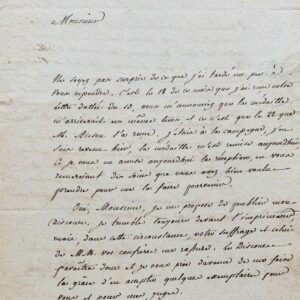 Monsieur
Ne soyez pas surpris de ce que j'ai tardé un peu à
vous repondre. C'est le 18 de ce mois que j'ai reçu votre
lettre datée du 13, vous m'annonciez que la médaille
m'arriverait en même tems et ce n'est que le 22 que
M. l'a reçue. j'étais à la campagne, j'en
suis revenu hier, la médaille m'est remise aujourd'hui
et je vous en annonce aujourd'hui la réception, en vous
remerciant des soins que vous avez bien voulu
prendre pour me la faire parvenir.
Oui, Monsieur, je me propose de publier mon
discours, je tremble toujours devant l'imprimeur
mais dans cette circonstance votre suffrage et celui
de M.M. vos confrères me rassure. Le discours
paraîtra donc et je vous prie d'avance de me faire
la grace d'en accepter quelques exemplaires pour
vous et pour vos juges.